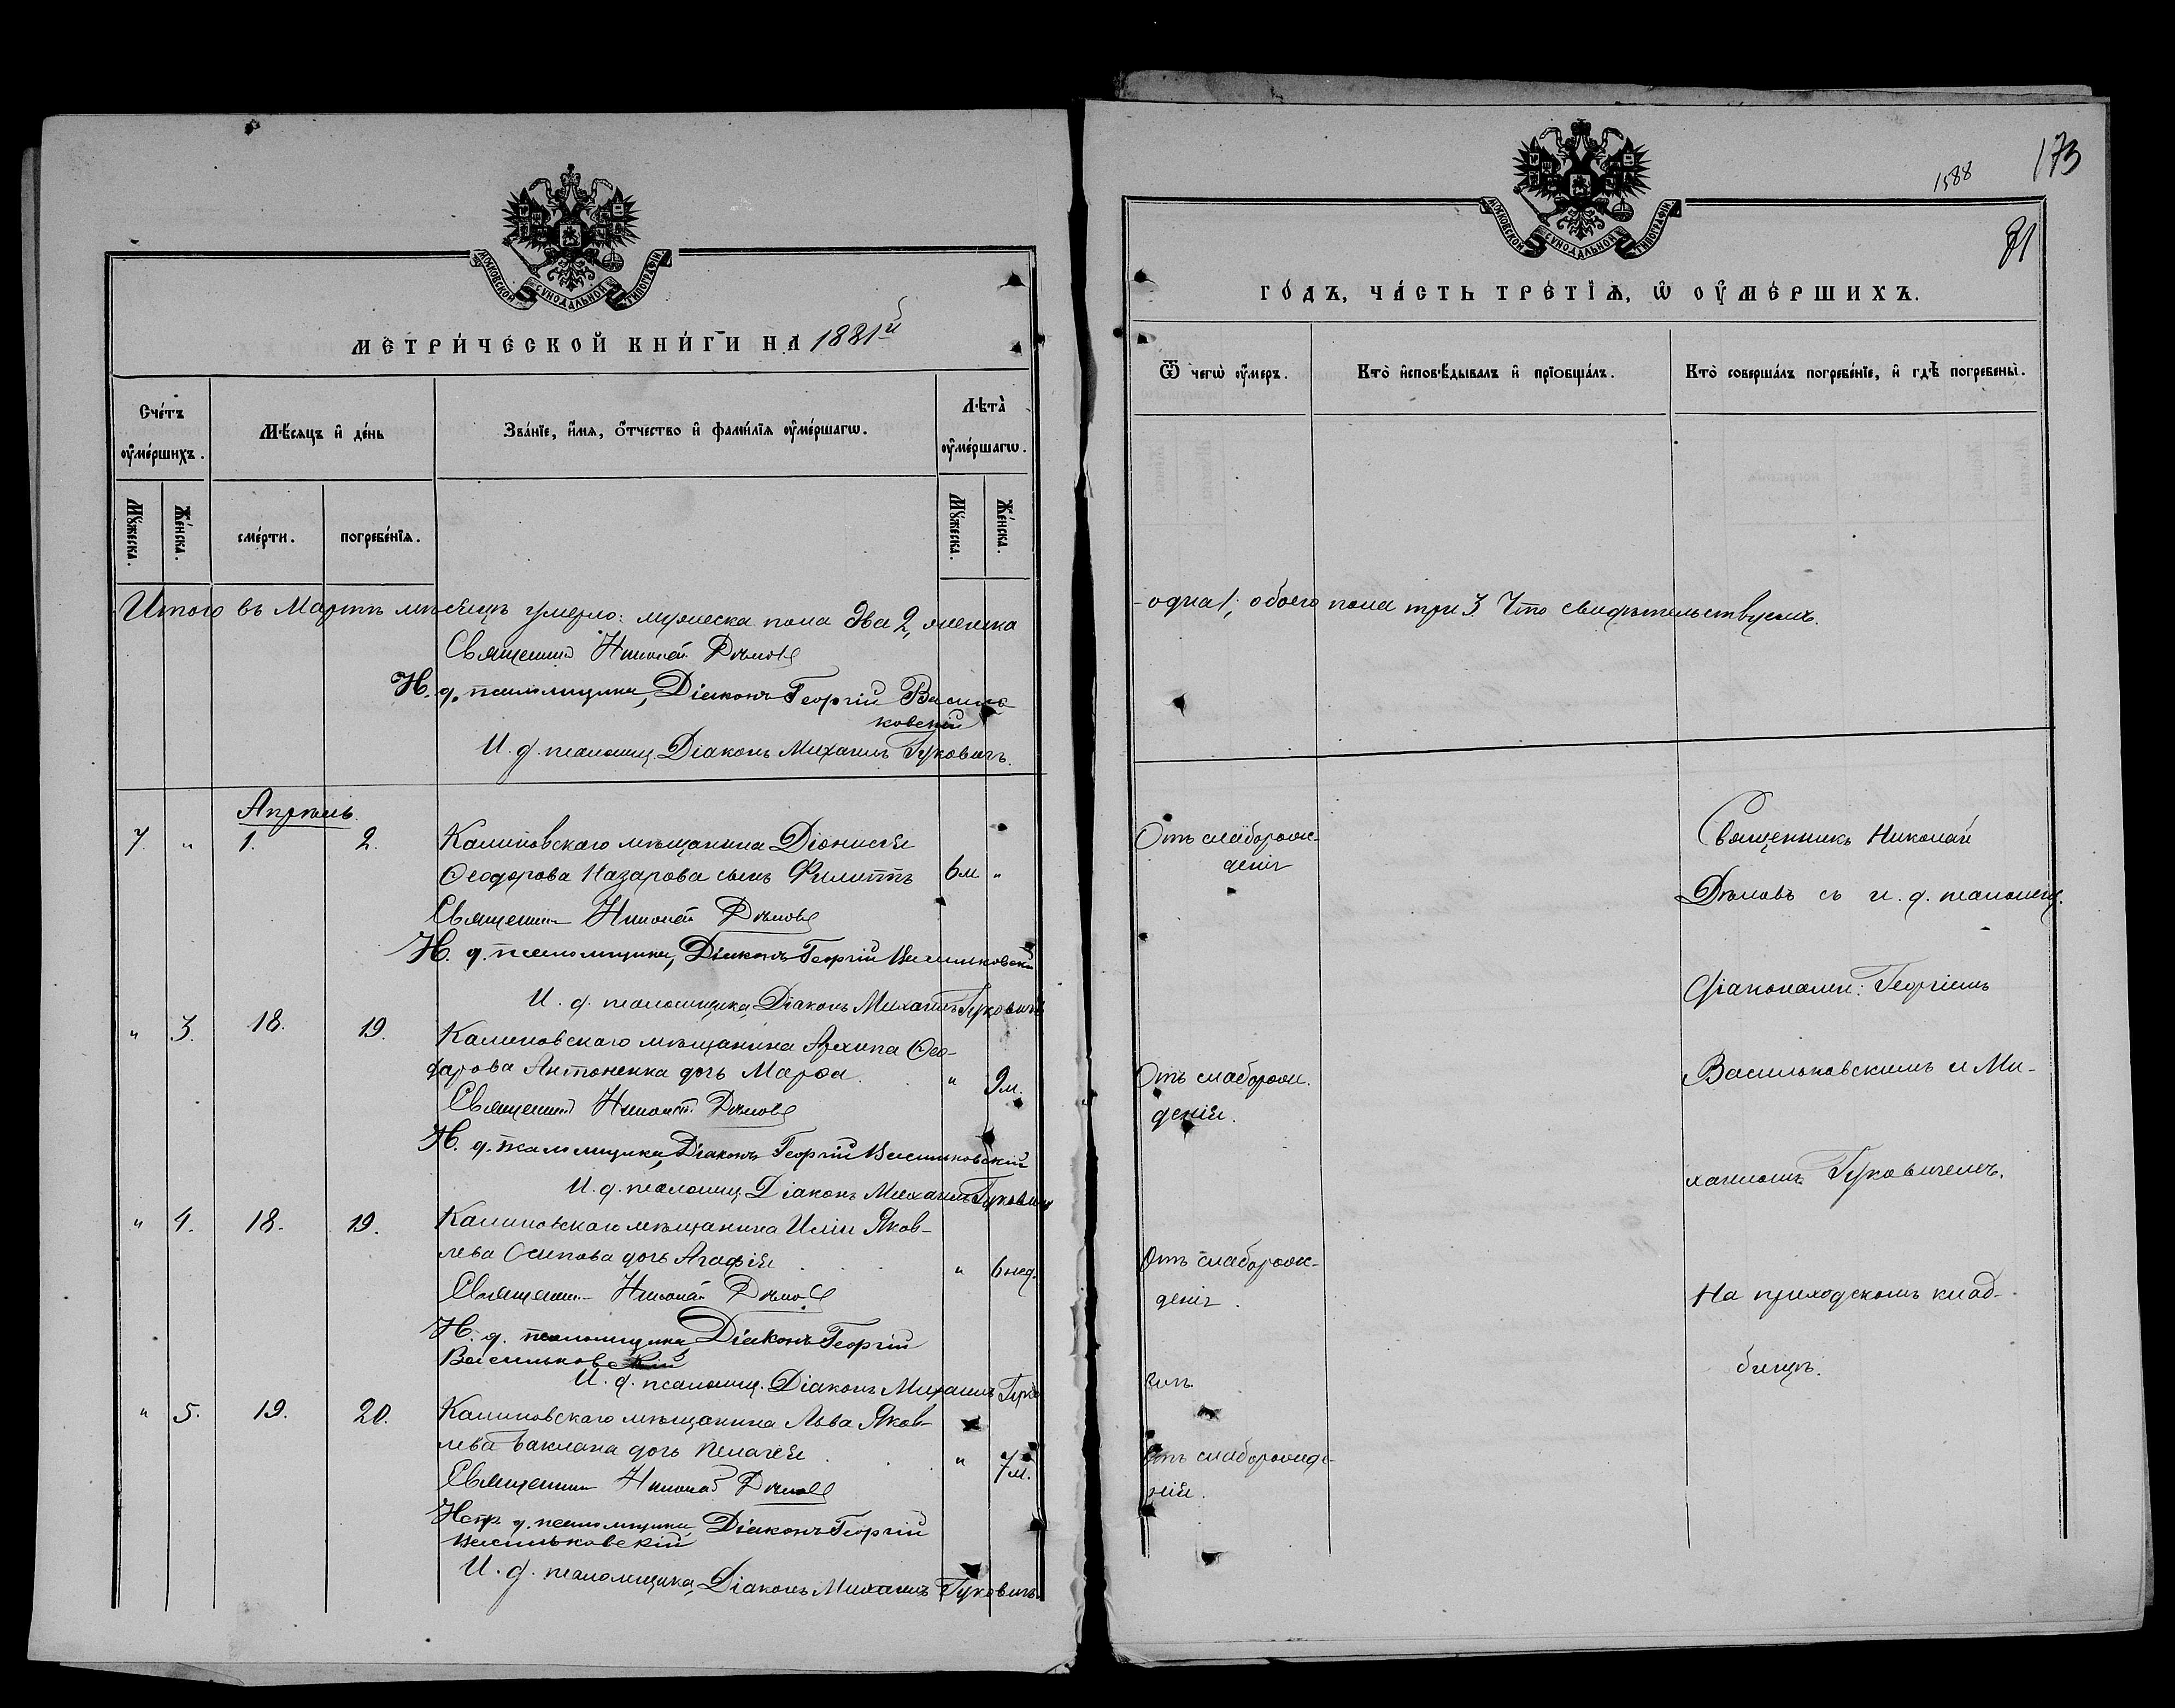 МОСКОВСКОЙ СѴНОДАЛЬНОЙ ТИПОГРАФІИ
МЕТРИ́ЧЕСКОЙ КНИ́ГИ НА 1881й
Сче́тъ ᲂу҆ме́ршихъ.
Мѣ́сяцъ и҆ де́нь
Зва́нїе, и҆́мѧ, ѻ҆́тчество и҆ фами́лїѧ ᲂу҆ме́ршагѡ.
Лѣта̀ ᲂу҆ме́ршагѡ.
Мꙋ́жеска.
Же́нска.
сме́рти.
погребе́нїѧ.
Мꙋ́жеска.
Же́нска.
Итого въ Мартѣ мѣсяцѣ умерло: мужеска пола два 2, женска
Священник Николай Дѣмов
И. д. псаломщика, Діаконъ Георгій Василь-
ковскій
И. д. псаломщ. Діаконъ Михаилъ Гуковичъ.
Апрѣль.
7. " 1. 2. Калиновскаго мѣщанина Діонисія
Ѳеодорова Назарова сынъ Филиппъ 6м "
Священник Николай Дѣмов
И. д. псаломщика, Діаконъ Георгій Васильковскій
И. д. псаломщика, Діаконъ Михаилъ Гуковичъ
" 3. 18. 19. Калиновскаго мѣщанина Архипа Ѳео-
дорова Антоненка дочь Марѳа. " 9м.
Священник Николай Дѣмов
И. д. псаломщика, Діаконъ Георгій Васильковскій
И. д. псаломщ. Діаконъ Михаилъ Гуковичъ
" 4. 18. 19. Калиновскаго мѣщанина Иліи Яков-
лева Осипова дочь Агафія " 6 нед.
Священник Николай Дѣмов
И. д. псаломщика, Діаконъ Георгій
Васильковскій
И. д. псаломщ. Діаконъ Михаилъ Гуко
" 5. 19. 20. Калиновскаго мѣщанина Льва Яков-
лева Баклана дочь Пелагія " 7м.
Священник Николай Дѣмов
Испр. д. псаломщика, Діаконъ Георгій
Васильковскій
И. д. псаломщика, Діаконъ Михаилъ Гуковичъ.
173
1588
81
МОСКОВСКОЙ СѴНОДАЛЬНОЙ ТИПОГРАФІИ
ГО́ДЪ, ЧА́СТЬ ТРЕ́ТЇѦ, Ѡ҆ ОУ҆МЕ́РШИХЪ.
Ѿ чегѡ̀ ᲂу҆́меръ.
Кто̀ и҆сповѣ́дывалъ и҆ прїобща́лъ.
Кто̀ соверша́лъ погребе́нїе, и҆ гдѣ̀ погребены̀.
-одна 1; обоего пола три 3. Что свидѣтельствуемъ.
Отъ слаборож-
денія
Священникъ Николай
Дѣмовъ съ и. д. псаломщ.
Діаконами: Георгіемъ
Отъ слаборож.
денія.
Васильковскимъ и Ми-
хаиломъ Гуковичемъ.
Отъ слаборож-
денія.
На приходскомъ клад-
бищѣ.
Отъ слаборожде-
нія.